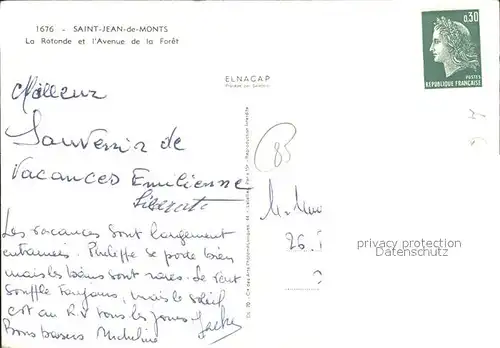 1676 - SAINT-JEAN-de-MONTS
La Rotonde et l'Avenue de la Forêt
0,30
POSTES
REPUBLIQUE FRANÇAISE
ELNAGAP
Meilleur
Souvenir de
Vacances Emilienne
83
Les vacances sont largement
entamées. Philippe se porte bien
mais les bains sont rares. Le vent
souffle toujours, mais le soleil
est au R.V tous les jours. Jacky
Bons baisers Micheline
26.
privacy protection
Datenschutz